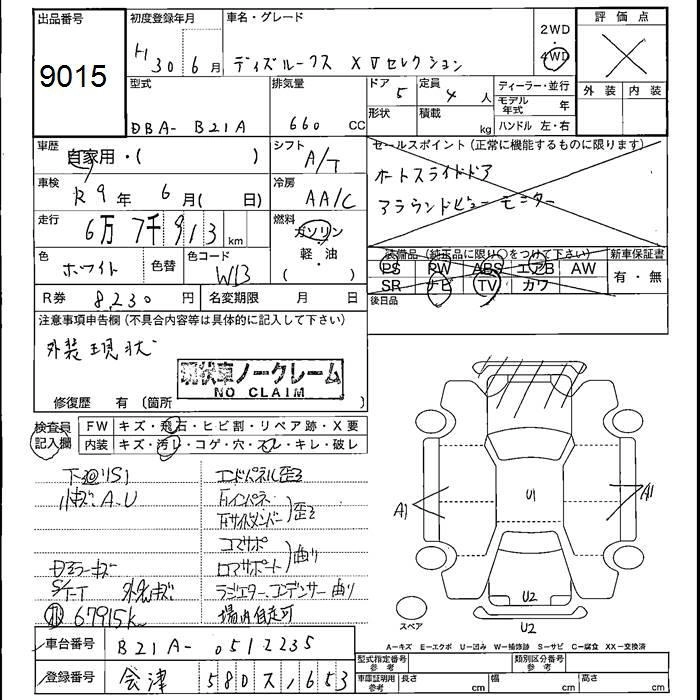 出品番号
9015
初度登録年月
H 30 6月
車名・グレード
デイズルークス X Vセレクション
2WD
4WD
評価点
外装 内装
型式
DBA- B21A
排気量
660 CC
ドア 5
形状
定員 4 人
積載 kg
ディーラー・並行
モデル年式 年
ハンドル 左・右
車歴
自家用・( )
シフト
A/T
セールスポイント(正常に機能するものに限ります)
オートスライドドア
アラウンドビューモニター
車検
R9年 6月( 日)
冷房
AA/C
走行
6万7千913 km
燃料
ガソリン
軽・油
( )
色
ホワイト
色替
色コード
W13
装備品(純正品に限り○をつけて下さい)
PS PW ABS エアB AW
SR ナビ TV カワ
新車保証書
有・無
後日品
R券 8230円
名変期限 月 日
注意事項申告欄(不具合内容等は具体的に記入して下さい)
外装現状
現状車ノークレーム
NO CLAIM
修復歴 有(箇所
検査員記入欄
FW キズ・飛石・ヒビ割・リペア跡・X要
内装 キズ・汚レ・コゲ・穴・スレ・キレ・破レ
下廻りS1
小キズA.U
エンドパネル歪ミ
歪ミ
コアサポ
ロアサポート
曲り
ラジエター、コンデンサー曲り
場内自走可
外丸キズ
67915k
A1
U1
A1
U2
U2
スペア
A－キズ E－エクボ U－凹み W－補修跡 S－サビ C－腐食 XX－交換済
車台番号 B21A- 0512235
登録番号 会津 580 ス 1653
型式指定番号 参考
類別区分番号 参考
車庫証明用 参考
長さ cm
幅 cm
高さ cm